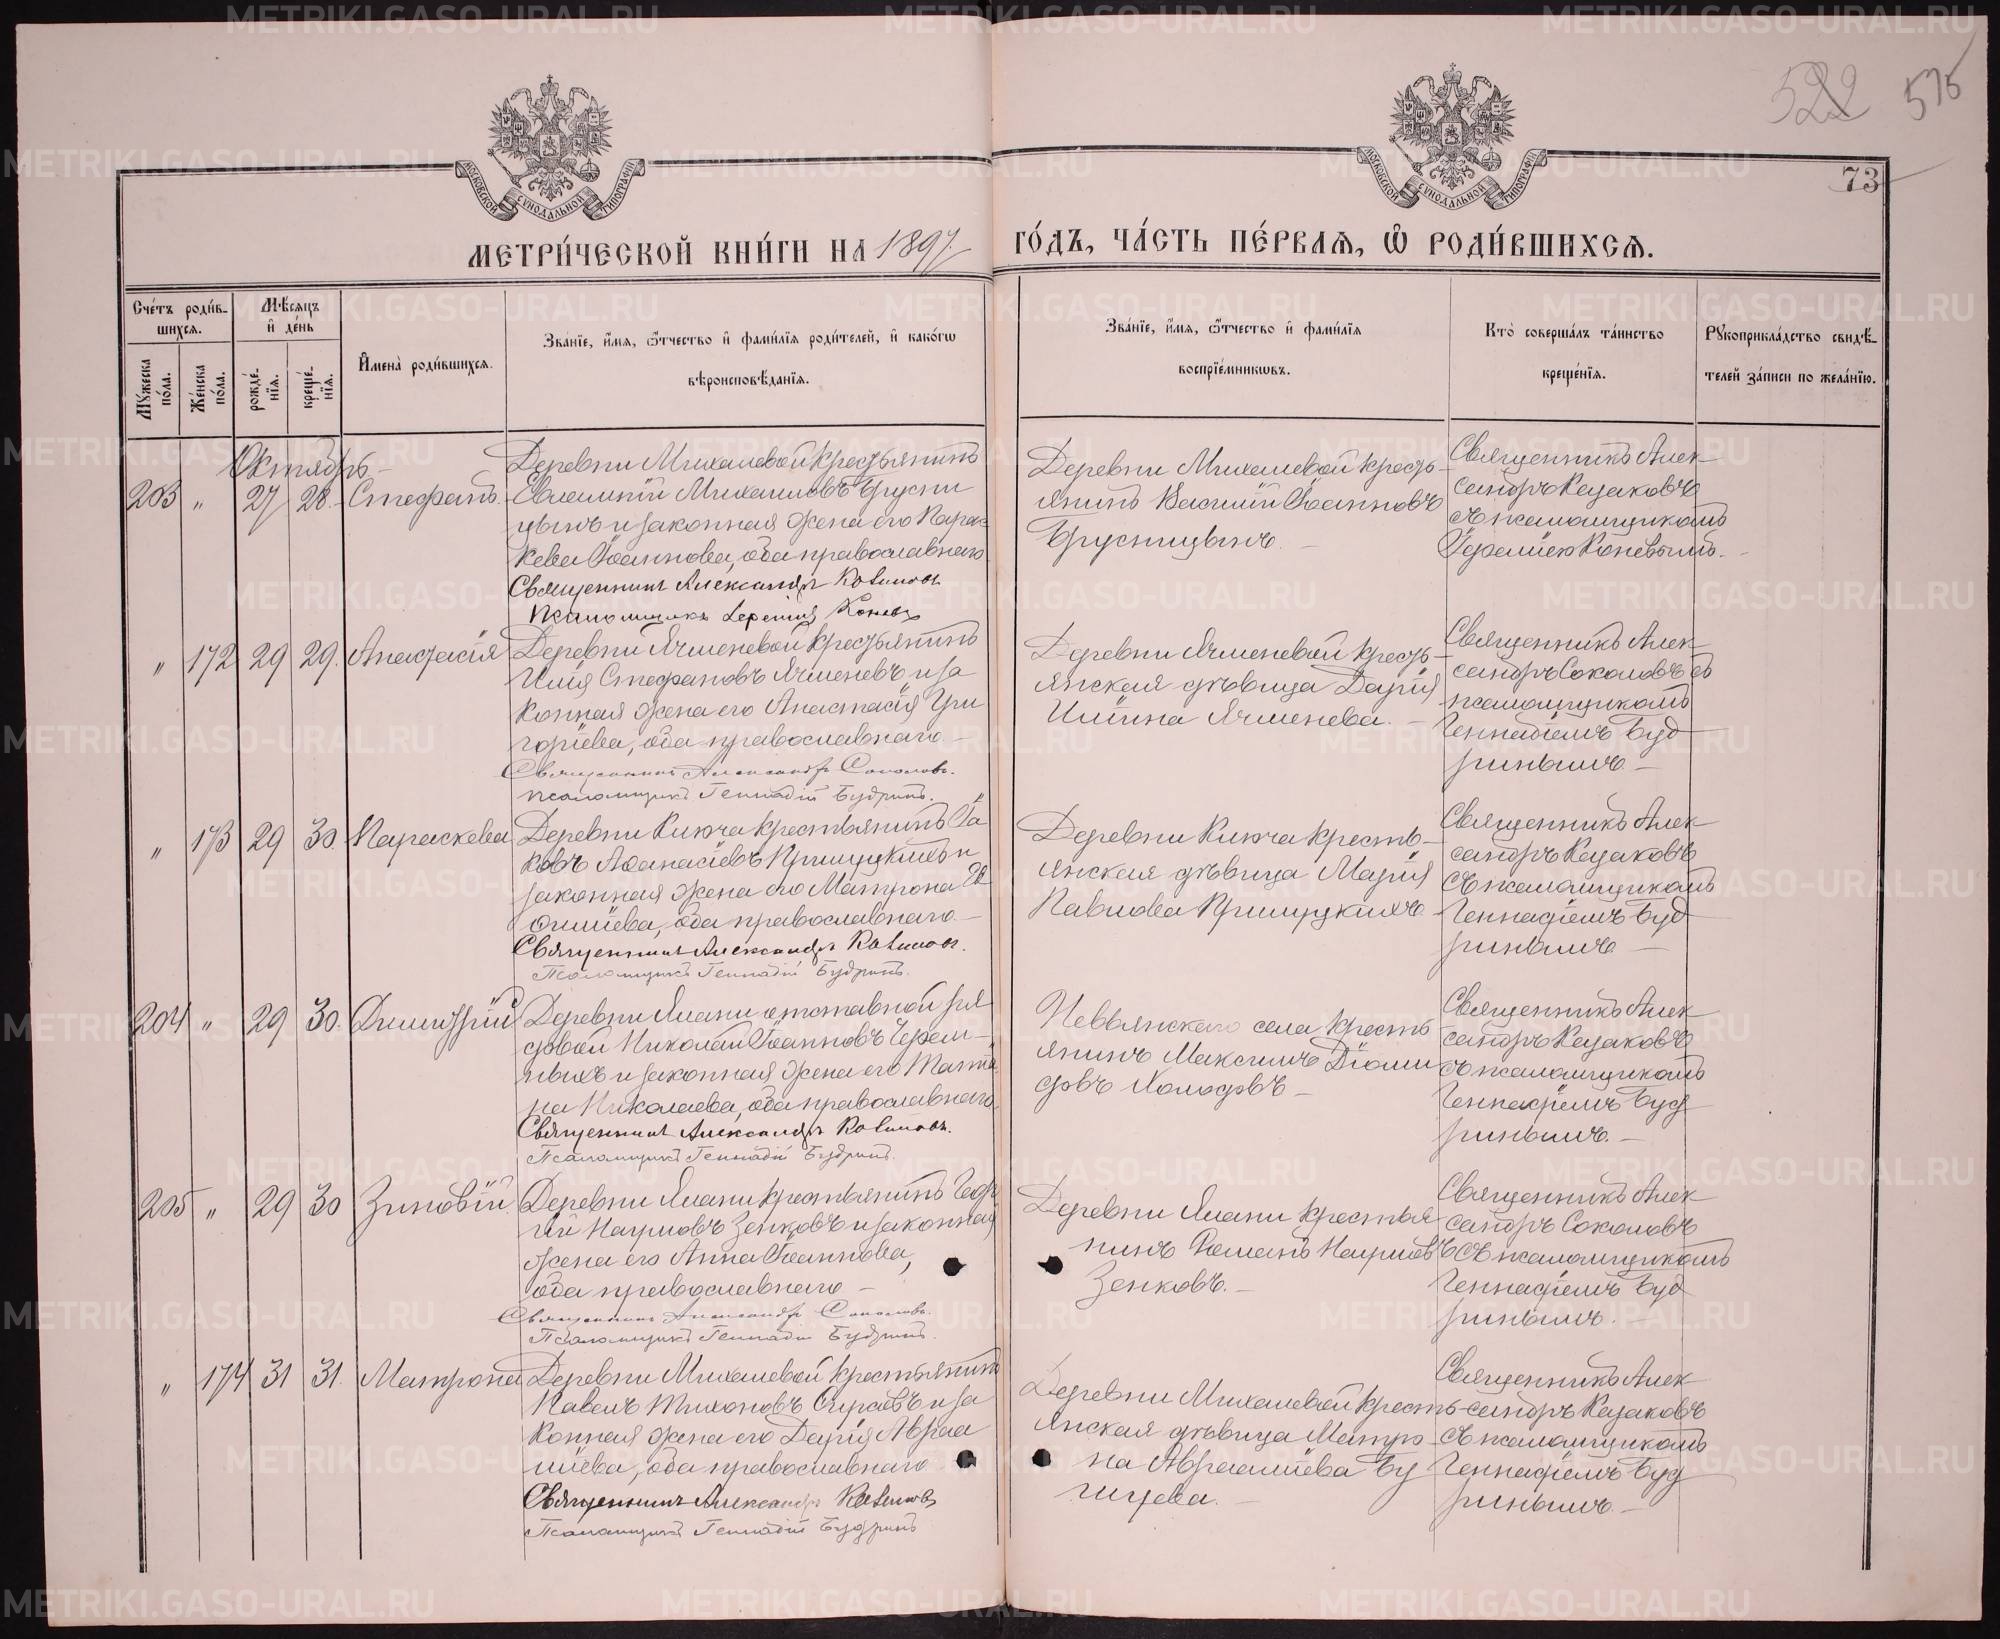 522 575
73
МОСКОВСКОЙ СѴНОДАЛЬНОЙ ТИПОГРАФІИ
МОСКОВСКОЙ СѴНОДАЛЬНОЙ ТИПОГРАФІИ
МЕТРИ́ЧЕСКОЙ КНИ́ГИ НА 1897
ГО́ДЪ, ЧА́СТЬ ПЕ́РВАѦ, Ѽ РОДИ́ВШИХСѦ.
Сче́тъ роди́в-
шихсѧ.
Мѣ́сѧцъ
и҆ де́нь
Мꙋ́жеска по́ла.
Же́нска по́ла.
рожде́нїѧ.
креще́нїѧ.
И҆мена̀ роди́вшихсѧ.
Зва́нїе, и҆́мѧ, ѻ҆́тчество и҆ фами́лїѧ роди́телей, и҆ како́гѡ
вѣроисповѣ́данїѧ.
Зва́нїе, и҆́мѧ, ѻ҆́тчество и҆ фами́лїѧ
воспрїе́мникѡвъ.
Кто̀ соверша́лъ та́инство
креще́нїѧ.
Рꙋкоприкла́дство свидѣ́-
телей за́писи по жела́нїю.
Октябрь
203 " 27 28 Стефанъ.
Деревни Михалевой крестьянинъ
Евлампій Михаиловъ Брусни
цынъ и законная жена его Парас
кева Іоаннова, оба православнаго
Священникъ Александръ Казаковъ
Псаломщикъ Іеремія Коневъ
Деревни Михалевой кресть-
янинъ Василій Іоанновъ
Брусницынъ.
Священникъ Алек
сандръ Казаковъ
съ псаломщикомъ
Іереміею Коневымъ.
" 172 29 29 Анастасія
Деревни Ячменевой крестьянинъ
Илія Стефановъ Ячменевъ и за
конная жена его Анастасія Гри
горіева, оба православнаго
Священникъ Александръ Соколовъ.
Псаломщикъ Геннадій Будринъ.
Деревни Ячменевой кресть-
янская дѣвица Дарія
Иліина Ячменева.
Священникъ Алек
сандръ Соколовъ съ
псаломщикомъ
Геннадіемъ Буд
ринымъ
" 173 29 30 Параскева
Деревни Ключа крестьянинъ Іа
ковъ Аѳанасіевъ и
законная жена его Матрона
оба православнаго
Священникъ Александръ Казаковъ.
Псаломщикъ Геннадій Будринъ.
Деревни Ключа кресть-
янская дѣвица Марія
Павлова
Священникъ Алек
сандръ Казаковъ
съ псаломщикомъ
Геннадіемъ Буд
ринымъ
204 " 29 30. Димитрій
Деревни Ялани отставной ря
довой Николай Іоанновъ Черем-
ныхъ и законная жена его Татіа
на Николаева, оба православнаго
Священникъ Александръ Казаковъ.
Псаломщикъ Геннадій Будринъ.
Невьянскаго села кресть
янинъ Максимъ Діоми
довъ Холодовъ
Священникъ Алек
сандръ Казаковъ
съ псаломщикомъ
Геннадіемъ Буд
ринымъ.
205 " 29 30 Зиновій.
Деревни Ялани крестьянинъ Геор
гій Наумовъ Зенковъ и законная
жена его Анна Іоаннова,
оба православнаго
Священникъ Александръ Соколовъ.
Псаломщикъ Геннадій Будринъ.
Деревни Ялани крестья
нинъ Романъ Наумовъ
Зенковъ.
Священникъ Алек
сандръ Соколовъ
съ псаломщикомъ
Геннадіемъ Буд
ринымъ.
" 174 31 31. Матрона
Деревни Михалевой крестьянинъ
Павелъ Тихоновъ и за
конная жена его Дарія Авраа
міева, оба православнаго
Священникъ Александръ Казаковъ
Псаломщикъ Геннадій Будринъ
Деревни Михалевой кресть-
янская дѣвица Матро
на Авраамiева Бу
Священникъ Алек
сандръ Казаковъ
съ псаломщикомъ
Геннадіемъ Буд
ринымъ.
METRIKI.GASO-URAL.RU